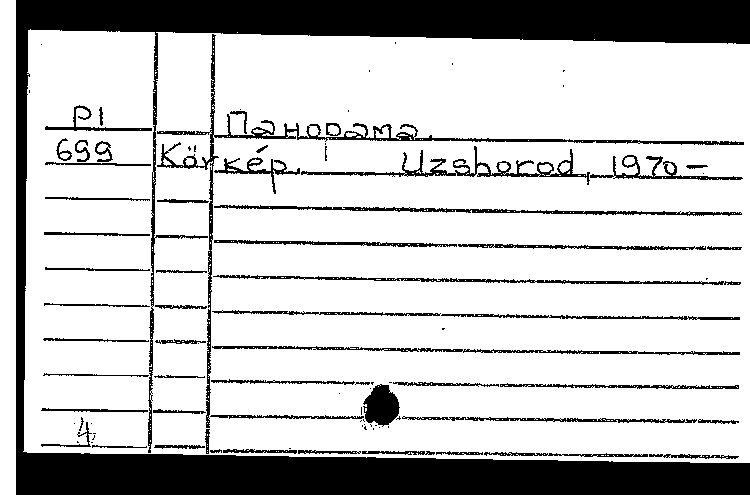 P1 Панорама.
699 Körkép. Uzshorod, 1970-
4